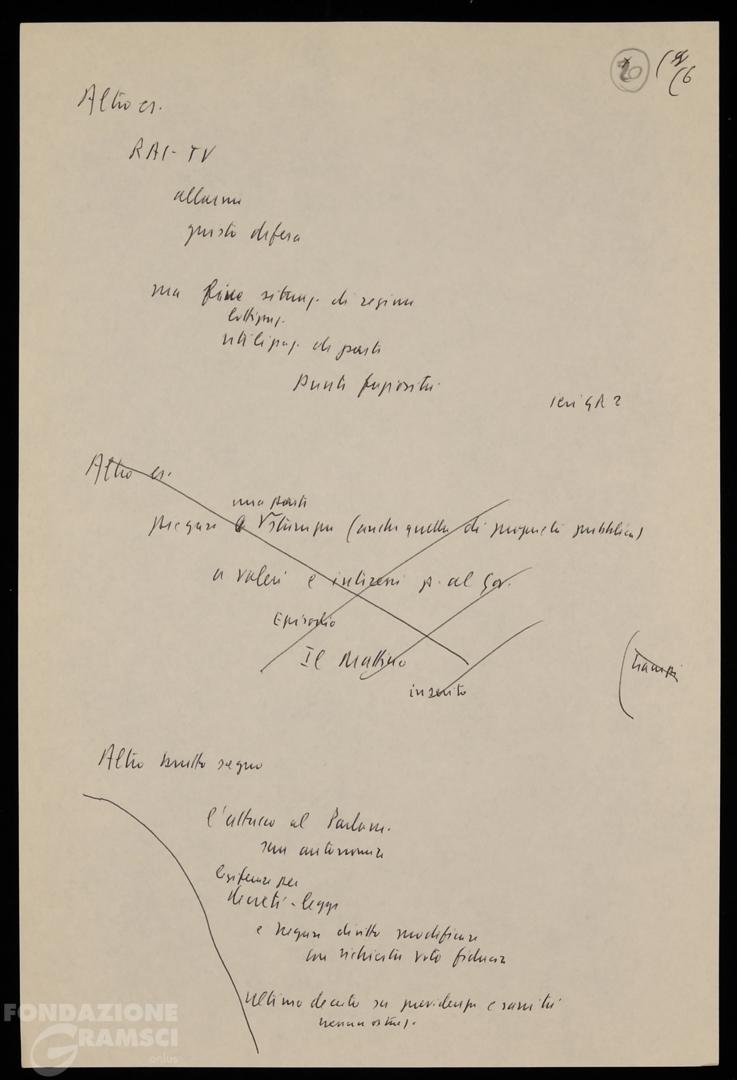 20 (9
(6
Altro es.
RAI-TV
allarme
giusta difesa
ma fine situaz. di regime
lottizzaz.
utilizzaz. di parte
punte faziosità
ieri GR2
Altro es.
una parte
piegare la stampa (anche quella di proprietà pubblica)
a voleri e interessi p. al Gov.
Episodio
Il Mattino
inserito
Altro brutto segno
l'attacco al Parlam.
sua autonomia
legiferare per
decreti-legge
e negare diritto modificare
con richiesta voto fiducia
ultimo decreto su previdenza e sanità
FONDAZIONE
GRAMSCI
onlus